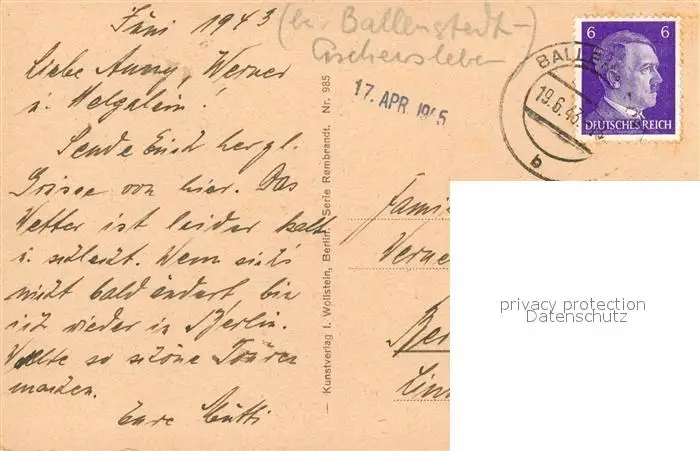 Juni 1943
(bei Ballenstedt-
Aschersleben
Liebe Anny, Werner
u. Helgalein!
Sende Euch herzl.
Grüsse von hier. Das
Wetter ist leider kalt
u. schlecht. Wenn sich's
nicht bald ändert, bin
ich wieder in Berlin.
Wollte so schöne Touren
machen.
Eure Mutti
Kunstverlag J. Wollstein, Berlin. Serie Rembrandt. Nr. 985
17. APR. 1945
6 6
DEUTSCHES REICH
BALLENS
19.6.43
b
Famil
Werne
Ber
privacy protection
Datenschutz